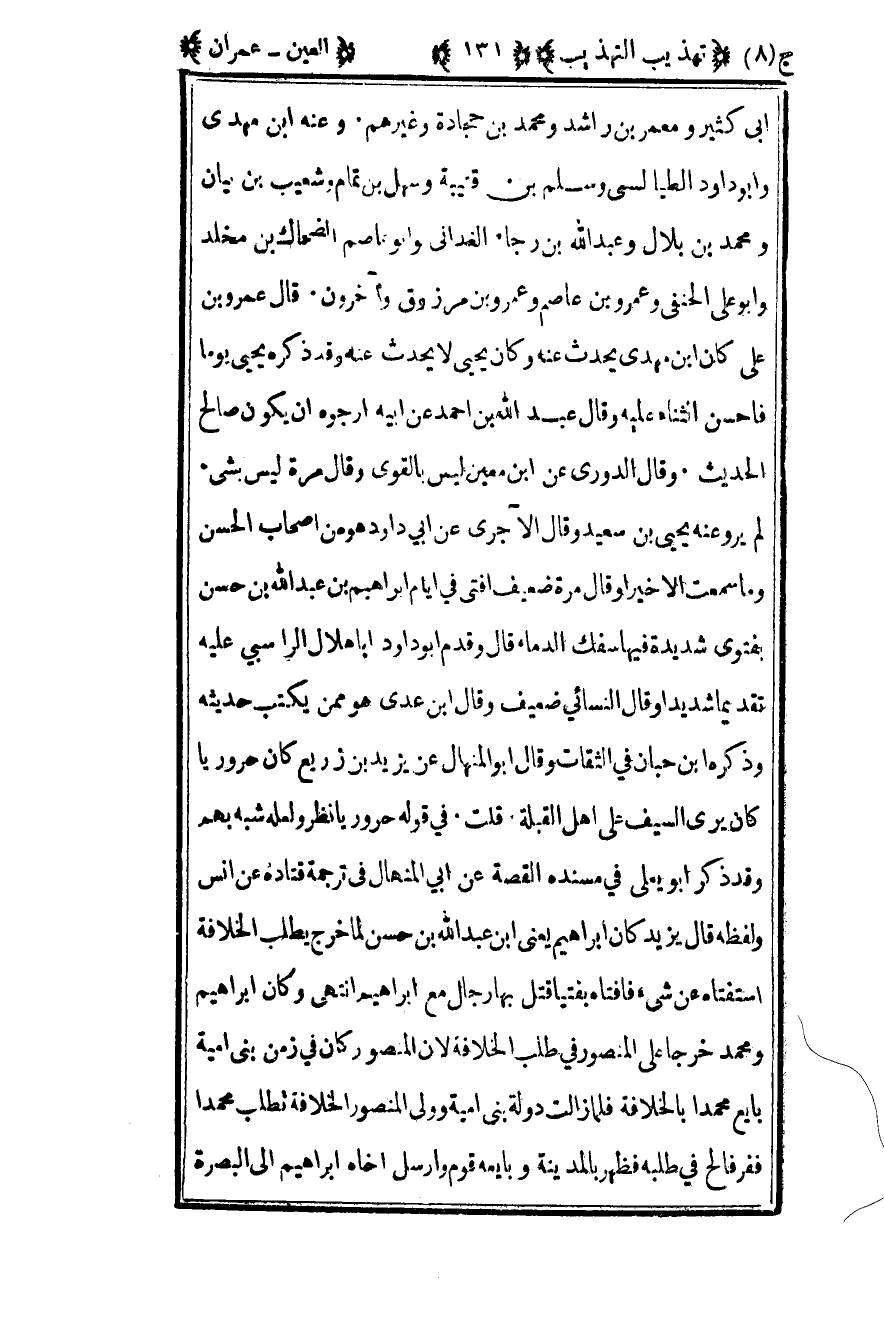 ج(٨) ﴿ تهذيب التهذيب ﴾ ﴿ ١٣١ ﴾ ﴿ العين - عمران ﴾
ابى كثير و معمر بن راشد ومحمد بن جحادة وغيرهم ۰ و عنه ابن مهدى
وابوداود الطيالسى وسلم بن قتيبة وسهل بن تمام وشعيب بن بيان
و محمد بن بلال وعبدالله بن رجاء الغدانى وابوعاصم الضحاك بن مخلد
وابوعلى الحنفى وعمرو بن عاصم وعمرو بن مرزوق وآخرون ۰ قال عمرو بن
على كان ابن مهدى يحدث عنه وكان يحيى لا يحدث عنه وقدذكره يحيى يوما
فاحسن الثناء عليه وقال عبد الله بن احمد عن ابيه ارجوه ان يكون صالح
الحديث ۰ وقال الدورى عن ابن معين ليس بالقوى وقال مرة ليس بشى ۰
لم يرو عنه يحيى بن سعيد وقال الآجرى عن ابي داود هو من اصحاب الحسن
وما سمعت الا خيرا وقال مرة ضعيف افتى في ايام ابراهيم بن عبدالله بن حسن
بفتوى شديدة فيها سفك الدماء قال وقدم ابوداود اباهلال الراسبي عليه
تقديما شديدا وقال النسائي ضعيف وقال ابن عدى هو ممن يكتب حديثه
وذكره ابن حبان في الثقات وقال ابوالمنهال عن يزيد بن زريع كان حروريا
كان يرى السيف على اهل القبلة ۰ قلت ۰ في قوله حروريا نظر ولعله شبه بهم
وقدذكر ابويعلى في مسنده القصة عن ابي المنهال فى ترجمة قتادة عن انس
ولفظه قال يزيد كان ابراهيم يعنى ابن عبدالله بن حسن لما خرج يطلب الخلافة
استفتاه عن شىء فافتاه بفتيا قتل بها رجال مع ابراهيم انتهى وكان ابراهيم
ومحمد خرجا على المنصور في طلب الخلافة لان المنصور كان في زمن بنى امية
بايع محمدا بالخلافة فلما زالت دولة بنى امية وولى المنصور الخلافة تطلب محمدا
ففر فالح في طلبه فظهر بالمدينة و بايعه قوم وارسل اخاه ابراهيم الى البصرة